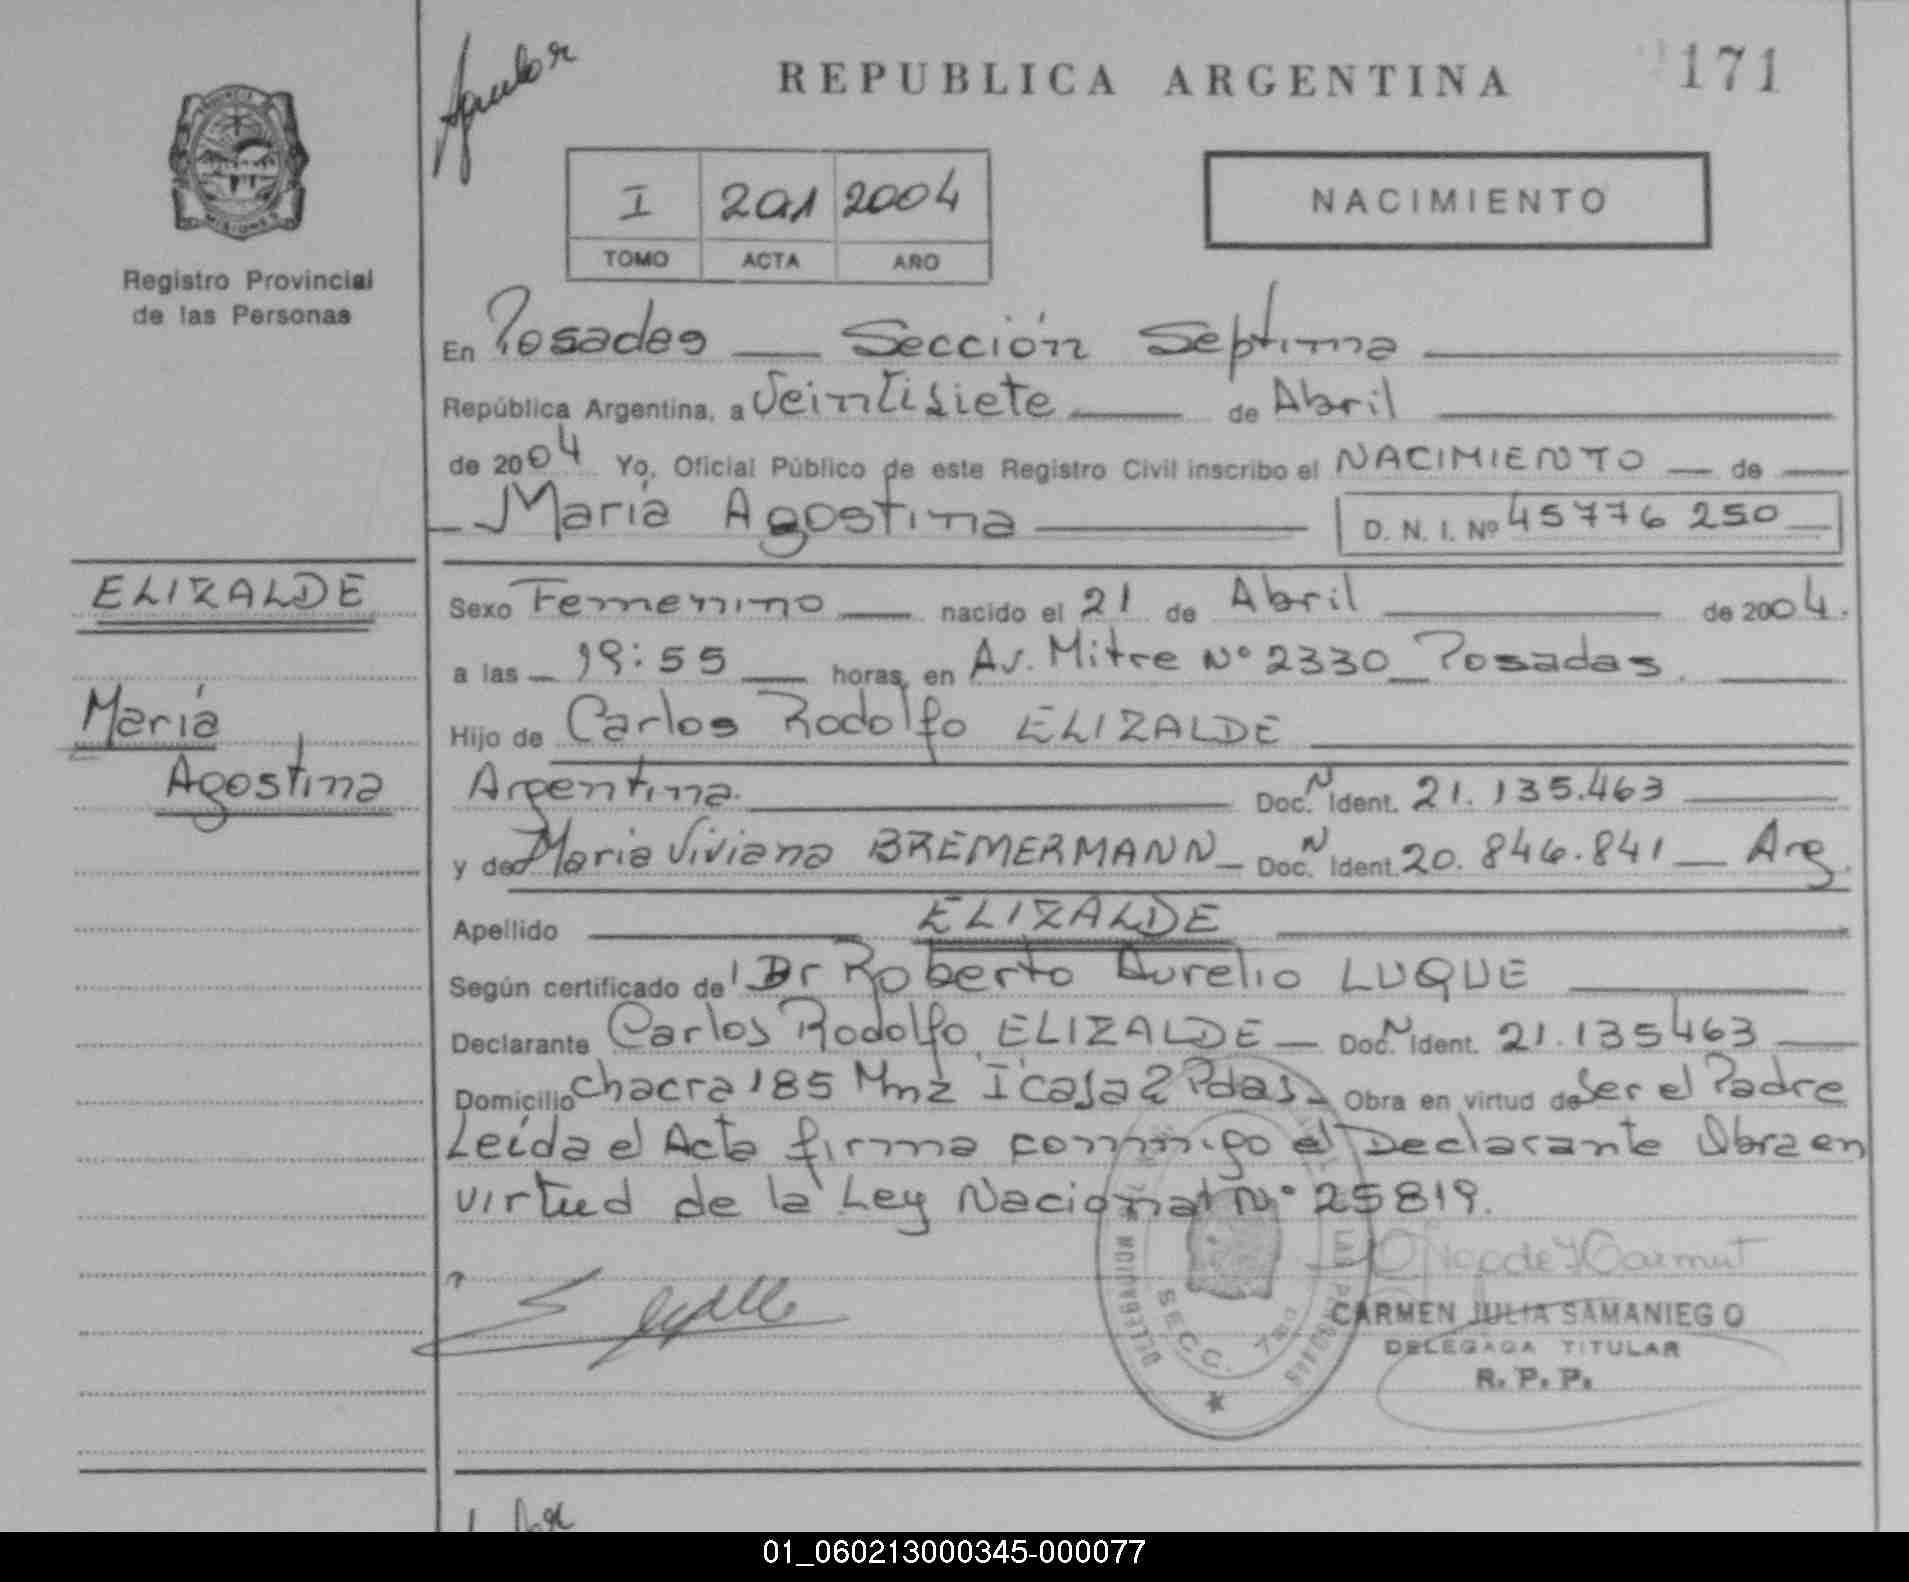 171
REPUBLICA ARGENTINA
I 201 2004
TOMO ACTA AÑO
NACIMIENTO
MISIONES
Registro Provincial
de las Personas
En Posadas — Sección Septima
República Argentina, a Veintisiete de Abril
de 2004 Yo, Oficial Público de este Registro Civil inscribo el NACIMIENTO — de
María Agostina D. N. I. Nº 45776 250
ELIZALDE
María
Agostina
Sexo Femenino nacido el 21 de Abril de 2004.
a las 19:55 horas, en Av. Mitre Nº 2330 Posadas.
Hijo de Carlos Rodolfo ELIZALDE
Argentina. Doc. N Ident. 21.135.463
y de Maria Viviana BREMERMANN — Doc. N Ident. 20.846.841 — Arg.
Apellido ELIZALDE
Según certificado de Dr Roberto Aurelio LUQUE
Declarante Carlos Rodolfo ELIZALDE — Doc. N Ident. 21.135463
Domicilio chacra 185 Mnz I casa 2 Pdas — Obra en virtud de Ser el Padre
Leída el Acta firma conmigo el Declarante Obra en
virtud de la Ley Nacional Nº 25819.
SECC. 7
CARMEN JULIA SAMANIEGO
DELEGADA TITULAR
R. P. P.
01_060213000345-000077